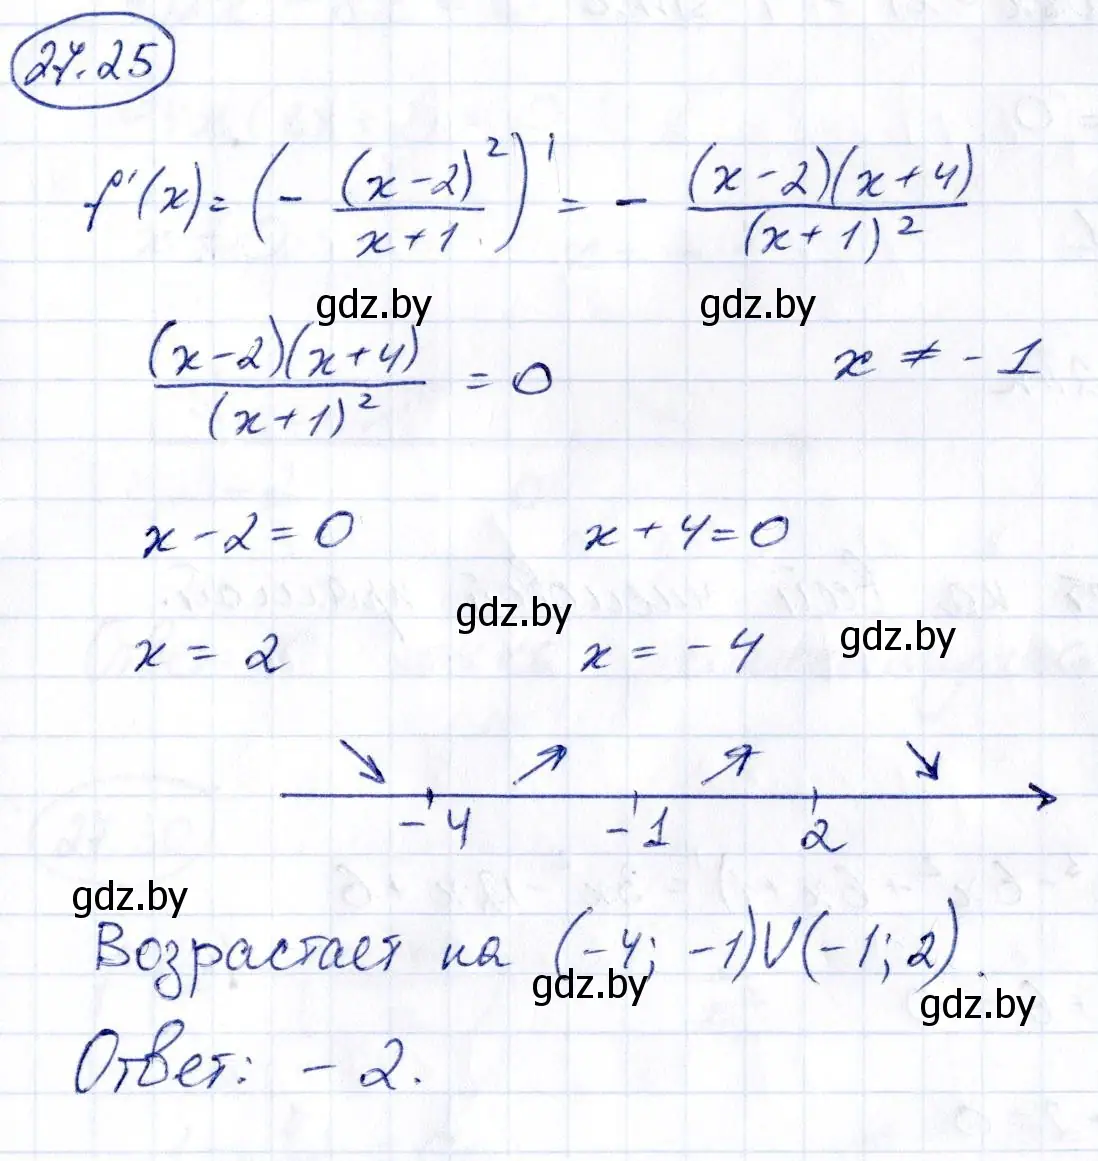 27.25
f'(x) = (- (x-2)²/(x+1))' = - (x-2)(x+4)/(x+1)²
gdz.by gdz.by
(x-2)(x+4)/(x+1)² = 0 x ≠ -1
x - 2 = 0 x + 4 = 0
gdz.by gdz.by
x = 2 x = -4
-4 -1 2
gdz.by
Возрастает на (-4; -1)∪(-1; 2).
gdz.by gdz.by
Ответ: -2.